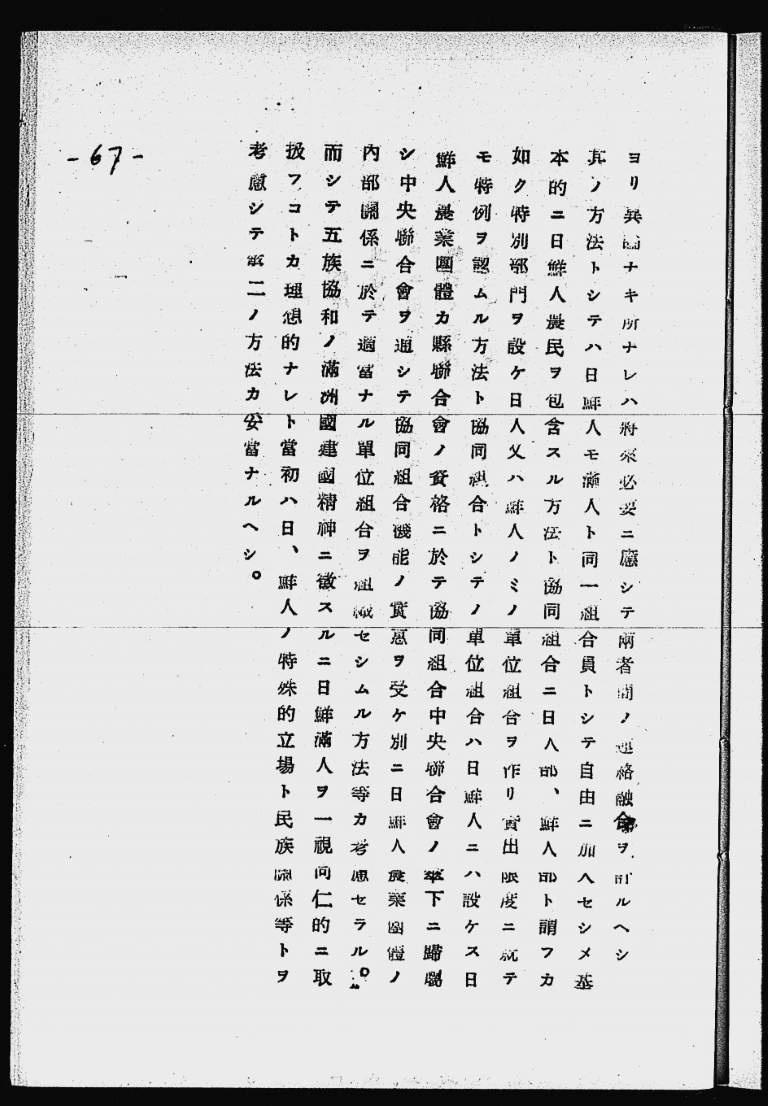 ヨリ異論ナキ所ナレハ將來必要ニ應シテ兩者間ノ連絡融合ヲ計ルヘシ
其ノ方法トシテハ日鮮人モ滿人ト同一組合員トシテ自由ニ加入セシメ基
本的ニ日鮮人農民ヲ包含スル方法ト協同組合ニ日人部、鮮人部ト謂フカ
如ク特別部門ヲ設ケ日人又ハ鮮人ノミノ單位組合ヲ作リ貸出限度ニ就テ
モ特例ヲ認ムル方法ト協同組合トシテノ單位組合ハ日鮮人ニハ設ケス日
鮮人農業團體カ縣聯合會ノ資格ニ於テ協同組合中央聯合會ノ傘下ニ歸屬
シ中央聯合會ヲ通シテ協同組合機能ノ實惠ヲ受ケ別ニ日鮮人農業團體ノ
內部關係ニ於テ適當ナル單位組合ヲ組織セシムル方法等カ考慮セラル。
而シテ五族協和ノ滿洲國建國精神ニ徵スルニ日鮮滿人ヲ一視同仁的ニ取
扱フコトカ理想的ナレト當初ハ日、鮮人ノ特殊的立場ト民族關係等トヲ
考慮シテ第二ノ方法カ妥當ナルヘシ。
-67-